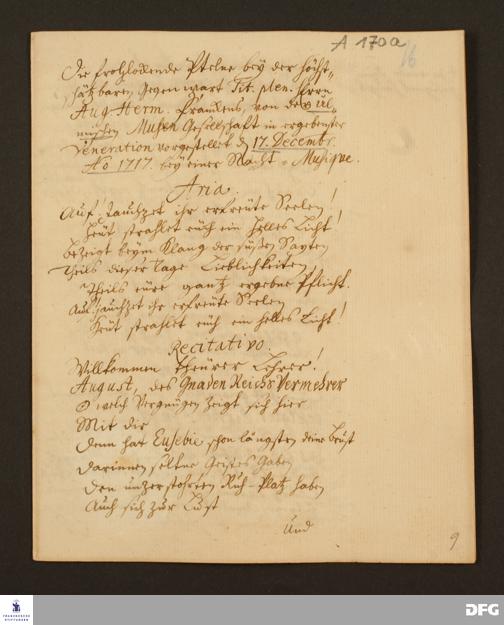 A 170a
16
Die frohlockende Pleine bey der Höchst„
schätzbaren Gegenwart Tit. plen. Herrn
Aug. Herm. Franckens, von der Ul„
mischen Musen Gesellschafft in ergebenster
Veneration vorgestellet d. 17. Decembr.
Ao 1717. bey einer Nacht-Musique.
Aria.
Auf, Jauchzet ihr erfreute Seelen!
Heut strahlet euch ein helles Licht!
Bezeigt beym Klang der süßen Sayten
Theils dieser Tage Lieblichkeiten
Theils eure gantz ergebne Pflicht.
Auf, Jauchzet ihr erfreute Seelen
Heut strahlet euch ein helles Licht!
Recitativo.
Willkommen theurer Lehrer!
August, des Gnaden Reichs Vermehrer
O welch Vergnügen zeigt sich hier
Mit dir
Denn hat Eusebie schon längsten deine Brust
Darinnen seltne Geistes Gaben
Den unzerstohrten Ruh-Platz haben
Auch sich zur Lust
Und
9
FRANCKESCHE
STIFTUNGEN
DFG